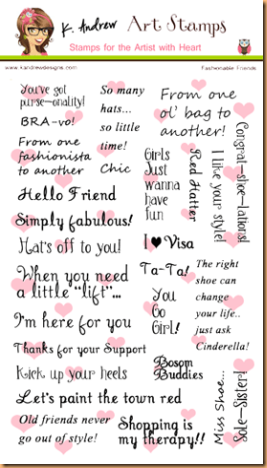 K. Andrew Art Stamps
Stamps for the Artist with Heart
www.kandrewdesigns.com
Fashionable Friends
You've got
purse-onality!
BRA-vo!
From one
fashionista
to another
So many
hats...
so little
time!
Chic
From one
ol' bag to
another!
Congrat-shoe-lations!
Girls
Just
wanna
have
fun
Red Hatter
I like your style!
Hello Friend
Simply fabulous!
Hat's off to you!
I ♥ Visa
When you need
a little "lift"...
Ta-Ta!
The right
shoe can
change
your life..
just ask
Cinderella!
You
Go
Girl!
I'm here for you
Thanks for your Support
Kick up your heels
Bosom
Buddies
Let's paint the town red
Miss Shoe...
Sole-Sister!
Old friends never
go out of style!
Shopping is
my therapy!!